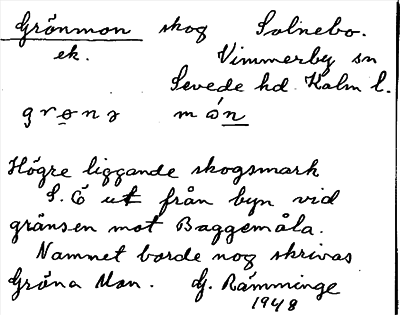 Grönmon skog Solnebo.
ek. Vimmerby sn
Sevede hd. Kalm l.
grønə món
Högre liggande skogsmark
S. Ö ut från byn vid
gränsen mot Baggemåla.
Namnet borde nog skrivas
Gröna Mon. G. Rämminge
1948